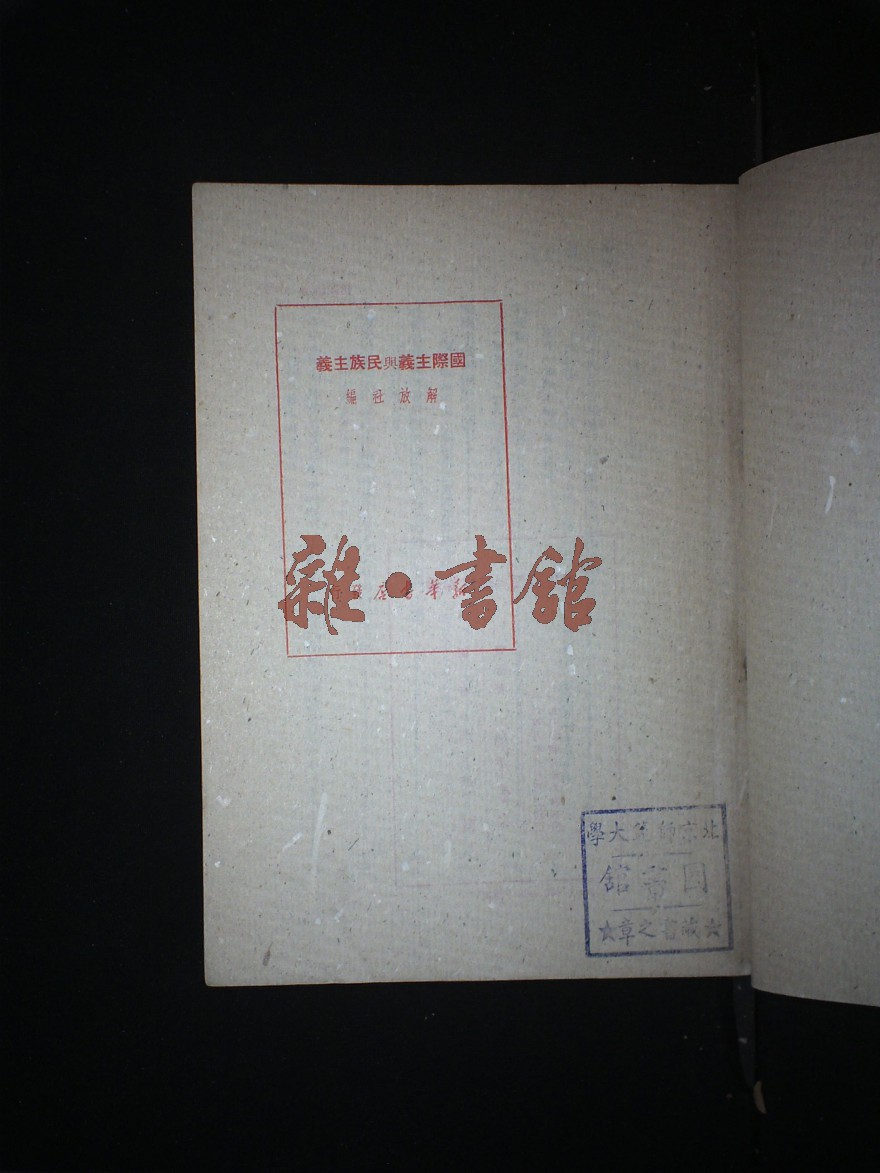 國際主義與民族主義
解放社編
新華書店發行
雜·書館
北京師範大學
圖書館
★藏書之章★